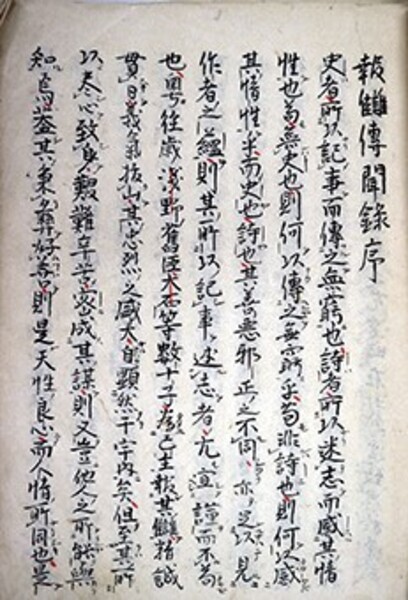 報讎傳聞録序
史者所以記事而傳之無窮也詩者所以述志而感其情
性也苟無史也則何以傳之無窮乎苟非詩也則何以感
其情性乎而史也詩也其善惡邪正之不同亦足以見
作者之蘊則其所以記事述志者尤宜謹而不苟
也粤往歳淺野舊臣大石等數十子爲亡主報其讎精誠
貫日義氣抜山其忠烈之盛大自顯然于宇内矣但至其所
以尽心致身艱難辛苦密成其謀則又豈他人之所能與
知焉蓋其秉彝好善則是天性良心而人情所同也是